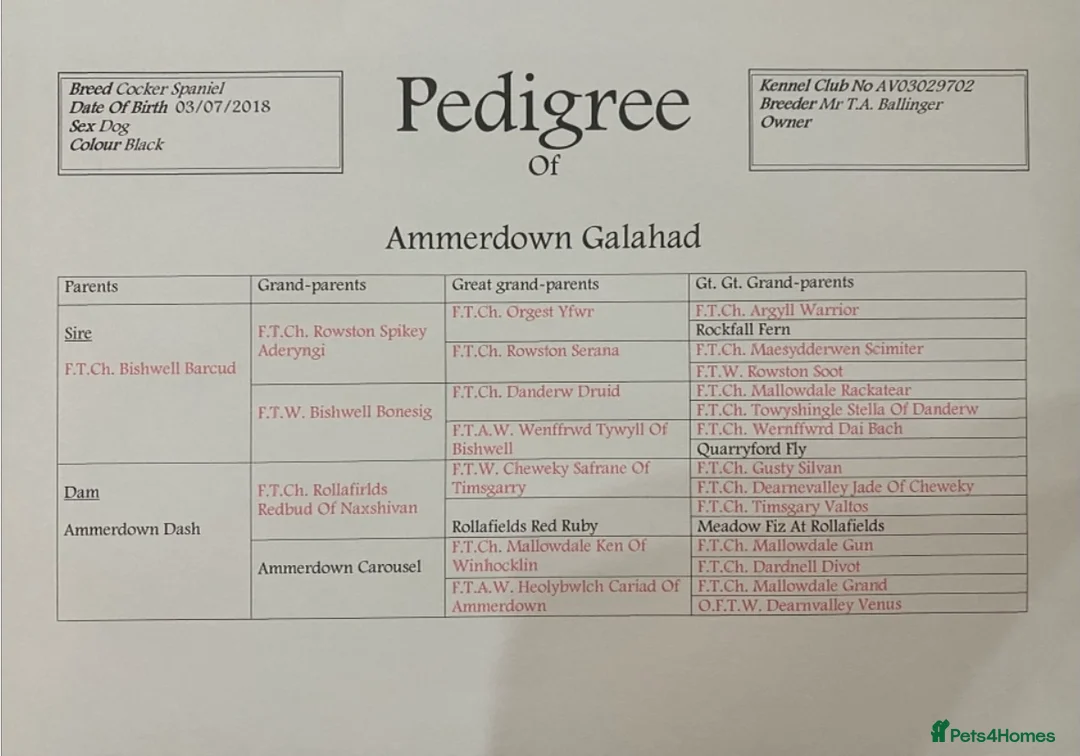 Breed Cocker Spaniel
Date Of Birth 03/07/2018
Sex Dog
Colour Black
Pedigree
Of
Kennel Club No AV03029702
Breeder Mr T.A. Ballinger
Owner
Ammerdown Galahad
Parents
Grand-parents
Great grand-parents
Gt. Gt. Grand-parents
Sire
F.T.Ch. Bishwell Barcud
F.T.Ch. Rowston Spikey
Aderyngi
F.T.W. Bishwell Bonesig
F.T.Ch. Orgest Yfwr
F.T.Ch. Rowston Serana
F.T.Ch. Danderw Druid
F.T.A.W. Wenffrwd Tywyll Of
Bishwell
F.T.Ch. Argyll Warrior
Rockfall Fern
F.T.Ch. Maesydderwen Scimiter
F.T.W. Rowston Soot
F.T.Ch. Mallowdale Rackatear
F.T.Ch. Towyshingle Stella Of Danderw
F.T.Ch. Wernffwrd Dai Bach
Quarryford Fly
Dam
Ammerdown Dash
F.T.Ch. Rollafirlds
Redbud Of Naxshivan
Ammerdown Carousel
F.T.W. Cheweky Safrane Of
Timsgarry
Rollafields Red Ruby
F.T.Ch. Mallowdale Ken Of
Winhocklin
F.T.A.W. Heolybwlch Cariad Of
Ammerdown
F.T.Ch. Gusty Silvan
F.T.Ch. Dearnevalley Jade Of Cheweky
F.T.Ch. Timsgary Valtos
Meadow Fiz At Rollafields
F.T.Ch. Mallowdale Gun
F.T.Ch. Dardnell Divot
F.T.Ch. Mallowdale Grand
O.F.T.W. Dearnvalley Venus
Pets4Homes